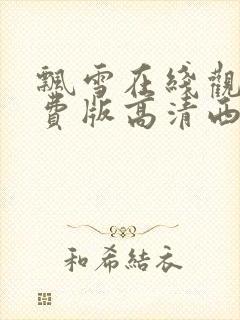 飄雪在綫觀
費版高清西
和希結衣